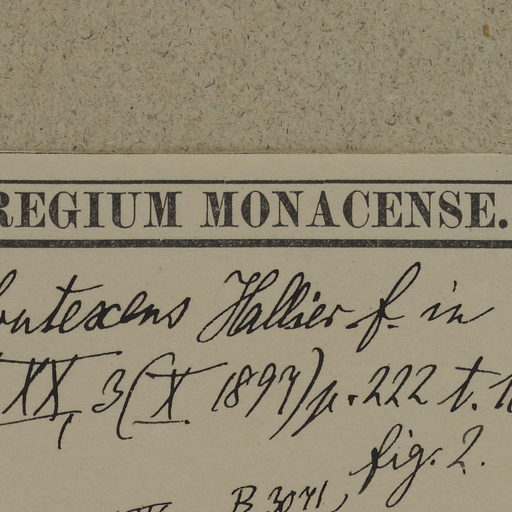 REGIUM MONACENSE.
frutexcens Hallier f. in
XX, 3 (X. 1897) p. 222 t. 1
fig. 2.
B. 3071,